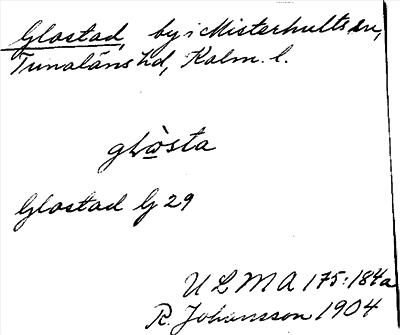 Glostad, by i Misterhults sn,
Tunaläns hd, Kalm. l.
glòsta
Glostad G 29
ULMA 175:184a
R. Johansson 1904